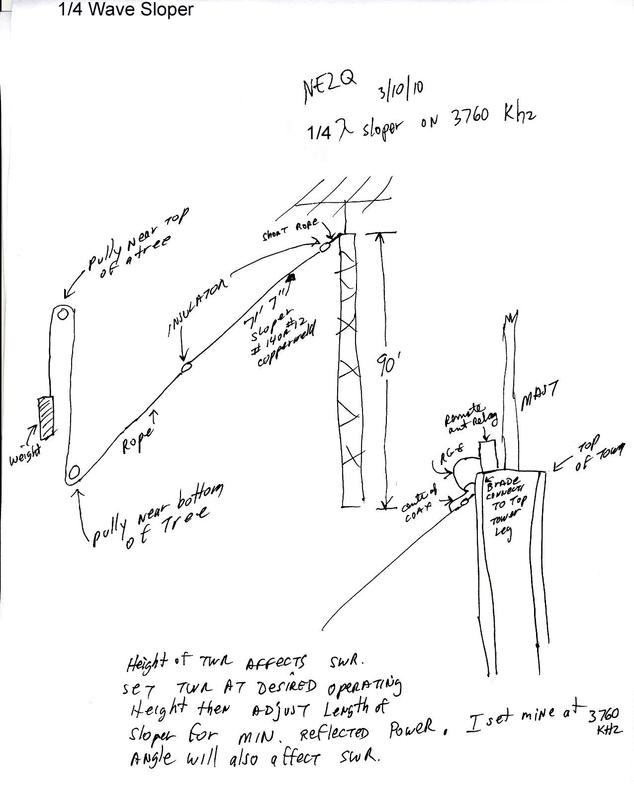 1/4 Wave Sloper
NE2Q 3/10/10
1/4 λ sloper on 3760 Khz
Short Rope
pully near top
of a tree
INSULATOR
71' 7"
sloper
# 14 or #12
copperweld
90'
weight
Rope
pully near bottom
of Tree
MAST
Remote
ant Relay
RG-8
TOP
OF Tower
center of
coax
BRADE
CONNECTS
TO TOP
TOWER
Leg
Height of TWR AFFECTS SWR.
SET TWR AT DESIRED OPERATING
Height then ADJUST Length of
sloper for MIN. Reflected Power. I set mine at 3760
KHz
ANGLE will also affect SWR.